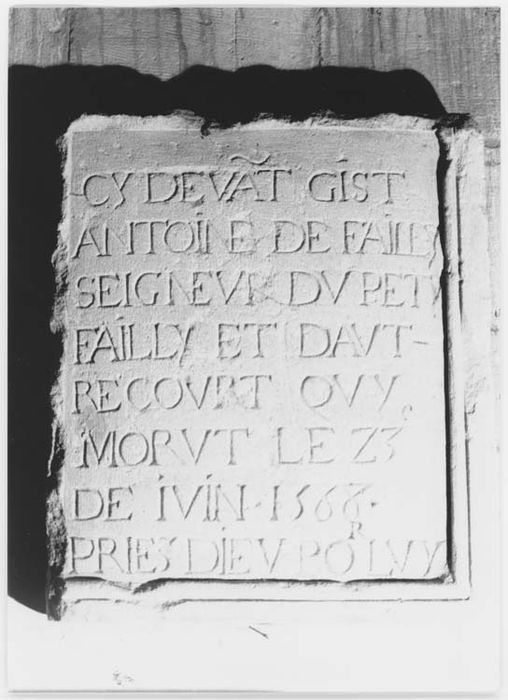 CY DEVÃT GIST
ANTOINE DE FAILLY
SEIGNEVR DV PETY
FAILLY ET DAVT-
RECOVRT QVY
MORVT LE Z3ᵉ
DE IVIN · 1568 ·
PRIES DIEV POᴿ LVY